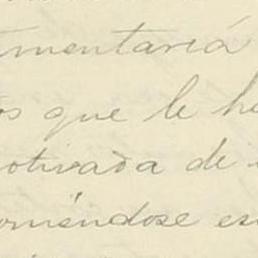 tamentaría
os que le he
otivada de
oniéndose es